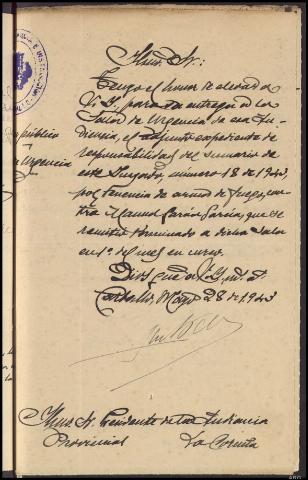 Ilmo. Sr:
Tengo el honor de elevar a
V.I. para su entrega a la
Sala de Urgencia de esa Au-
diencia, el adjunto expediente de
público
responsabilidad del sumario de
Urgencia
este Juzgado, número 18 de 1943,
por tenencia de arma de fuego, con-
tra Manuel García García, que se
remitió terminado a dicha Sala
en 1º del mes en curso.
Dios gue a V.I. m. a.
Mayo 28 de 1943
Ilmo. Sr. Presidente de la Audiencia
Provincial La Coruña